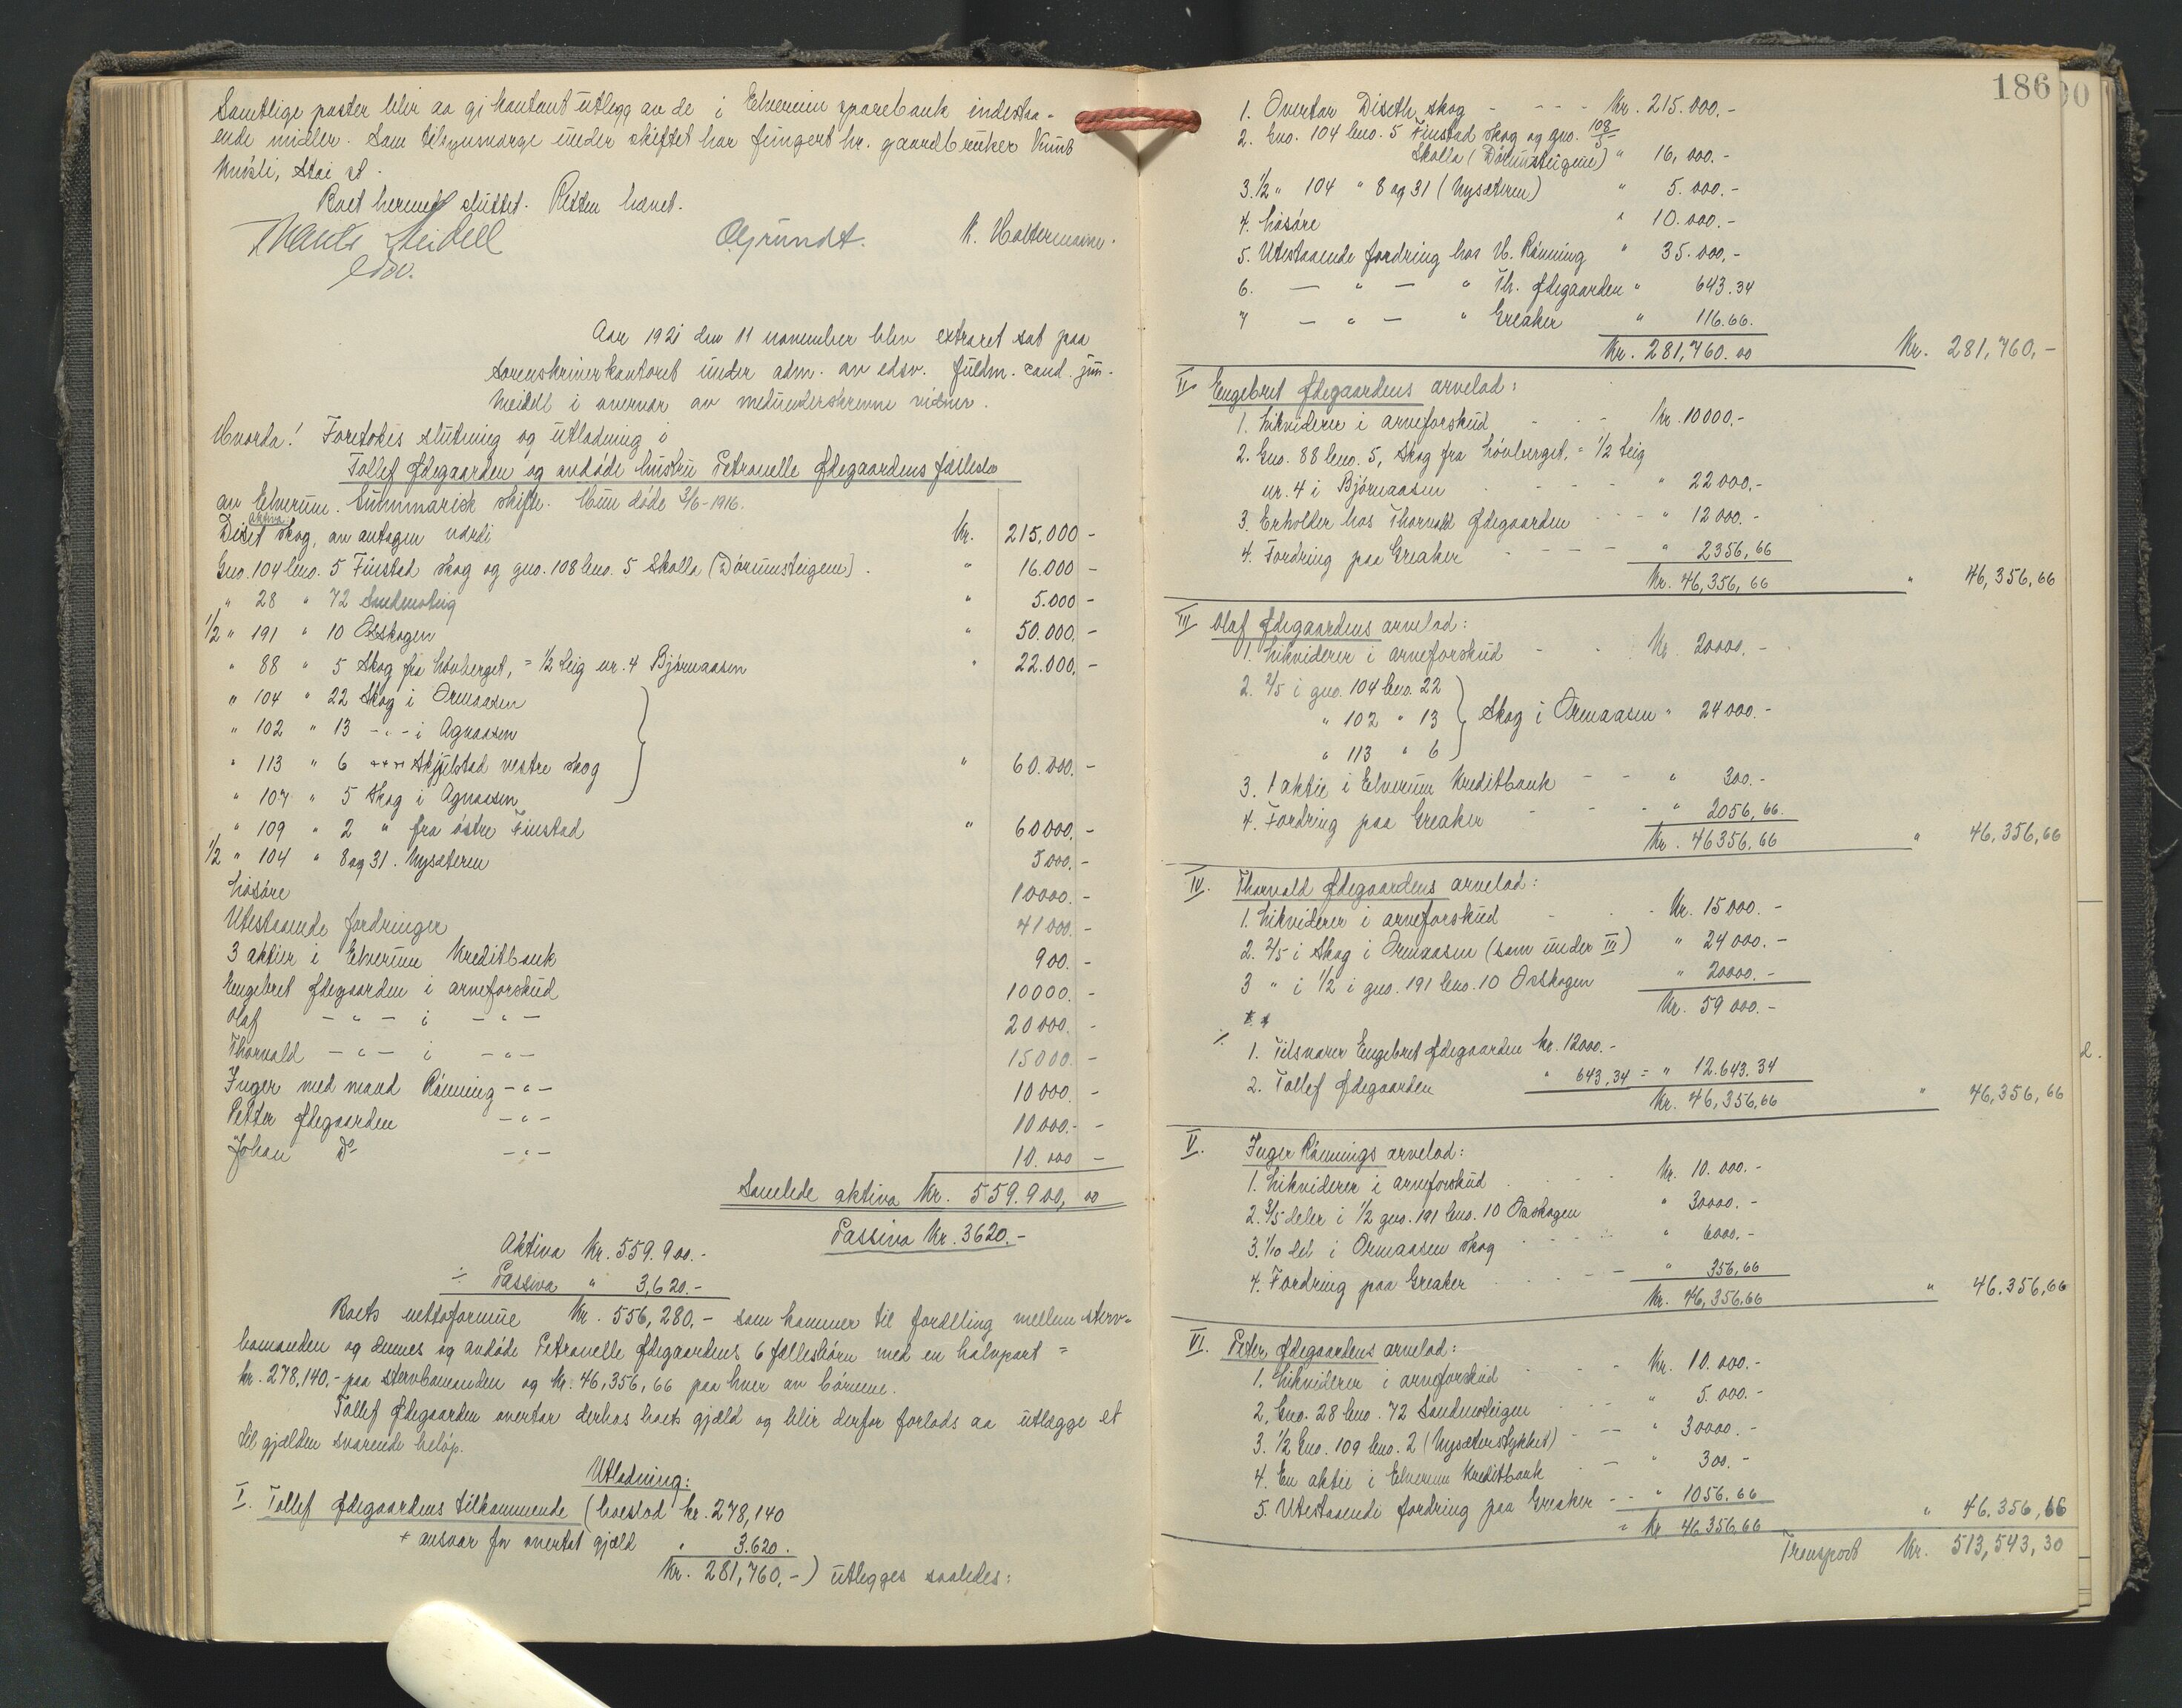 Samtlige poster blir aa gi kontant utlegg av de i Elverum sparebank indestaa-
ende midler. Som tilsynsverge under skiftet har fungert hr. gaardbruker Knut
Stai st.
Boet hermed sluttet. Retten hævet.
Meidell
edsv.
O Grundt.
K. Haltermann.
Aar 1921 den 11 november blev extraret sat paa
sorenskriverkontoret under adm. av edsv. fuldm. cand. jur.
Meidell i overvær av medunderskrevne vidner.
Hvorda! Foretokes slutning og utlodning i
Tollef Ødegaarden og avdøde hustru Petronelle Ødegaardens fællesbo
av Elverum. Summarisk skifte. Hun døde 3/6-1916.
aktiva
Diset skog, av antagen værdi Kr. 215,000 -
Gno. 104 bno. 5 Finstad skog og gno. 108 bno. 5 Skolla (Dørumsteigene). " 16.000 -
" 28 " 72 Sandensteig " 5.000 -
1/2 " 191 " 10 Osskogen " 50.000. -
" 88 " 5 Skog fra Løvberget, = 1/2 teig nr. 4 Bjørnaasen " 22.000. -
" 104 " 22 Skog i Ormaasen
" 102 " 13 - " - i Agnaasen
" 113 " 6 Skjulstad vestre skog " 60.000. -
" 107 " 5 Skog i Agnaasen
" 109 " 2 " fra østre Finstad " 60000. -
1/2 " 104 " 8 og 31. Nysæteren 5000. -
Løsøre 10000. -
Utestaaende fordringer 41000. -
3 aktier i Elverum Kreditbank 900. -
Engebret Ødegaarden i arveforskud 10000. -
Olaf - " - i - " - 20000. -
Thorvald - " - i - " - 15000. -
Inger med mand Rønning - " - 10000. -
Petter Ødegaarden - " - 10000. -
Johan Do - " - 10.000 -
Samlede aktiva Kr. 559.900, 00
Passiva Kr. 3620. -
Aktiva Kr. 559.900. -
÷ Passiva " 3,620. -
Boets nettoformue Kr. 556,280, - som kommer til fordeling mellem sterv-
bomanden og dennes og avdøde Petronelle Ødegaardens 6 fællesbørn med en halvpart =
kr. 278,140,- paa stervbomanden og kr. 46,356,66 paa hver av børnene.
Tollef Ødegaarden overtar derhos boets gjæld og blir derfor forlods aa utlægge et
til gjælden svarende beløp.
Utlodning:
I. Tollef Ødegaardens tilkommende (boeslod kr. 278,140
+ ansvar for overtat gjæld " 3.620.
Kr. 281,760,-) utlegges saaledes:
186
1. Overtar Diseth skog - - - - Kr. 215.000. -
2. Gno. 104 bno. 5 Finstad skog og gno. 108/5
Skolla (Dørumsteigene) " 16,000. -
3. 1/2 " 104 " 8 og 31 (Nysæteren) " 5.000. -
4. Løsøre " 10.000. -
5. Utestaaende fordring hos H. Rønning " 35.000, -
6. — " — " Th. Ødegaarden " 643.34
7 — " — " Greaker " 116.66.
Kr. 281,760.00 Kr. 281,760, -
II Engebret Ødegaardens arvelod:
1. Likviderer i arveforskud - - kr. 10000. -
2. Gno. 88 bno. 5, Skog fra Løvberget, = 1/2 teig
nr. 4 i Bjørnaasen - - - " 22000. -
3. Erholder hos Thorvald Ødegaarden - - - " 12000. -
4. Fordring paa Greaker - - - - " 2356,66
Kr. 46,356,66 " 46,356,66
III Olaf Ødegaardens arvelod:
1. Likviderer i arveforskud - - Kr. 20000. -
2. 2/5 i gno. 104 bno. 22
" 102 " 13 Skog i Ormaasen " 24000. -
" 113 " 6
3. 1 aktie i Elverum Kreditbank - - " 300. -
4. Fordring paa Greaker - - - " 2056,66.
Kr. 46356,66 " 46,356,66
IV. Thorvald Ødegaardens arvelod:
1. Likviderer i arveforskud - - - Kr. 15000. -
2. 2/5 i Skog i Ormaasen (som under III) " 24000. -
3 " i 1/2 i gno. 191 bno. 10 Osskogen " 20000. -
Kr. 59000. -
÷
1. Tilsvarer Engebret Ødegaarden kr. 12000. -
2. Tollef Ødegaarden " 643,34 = " 12.643.34
Kr. 46,356,66 " 46,356,66
V. Inger Rønnings arvelod:
1. Likviderer i arveforskud - - - Kr. 10.000. -
2. 3/5 deler i 1/2 gno. 191 bno. 10 Osskogen " 30000. -
3. 1/10 del i Ormaasen skog - - - " 6000. -
4. Fordring paa Greaker - - - - " 356,66
Kr. 46,356,66 " 46.356,66
VI. Peter Ødegaardens arvelod:
1. Likviderer i arveforskud - - - Kr. 10.000. -
2. Gno. 28 bno. 72 Sandensteigen - - " 5.000. -
3. 1/2 Gno. 109 bno. 2 (Nysæterstykket) - - - " 30000. -
4. En aktie i Elverum Kreditbank - - " 300. -
5. Utestaaende fordring paa Greaker - - " 1056.66
Kr. 46356,66 " 46,356,66
Transport Kr. 513,543,30